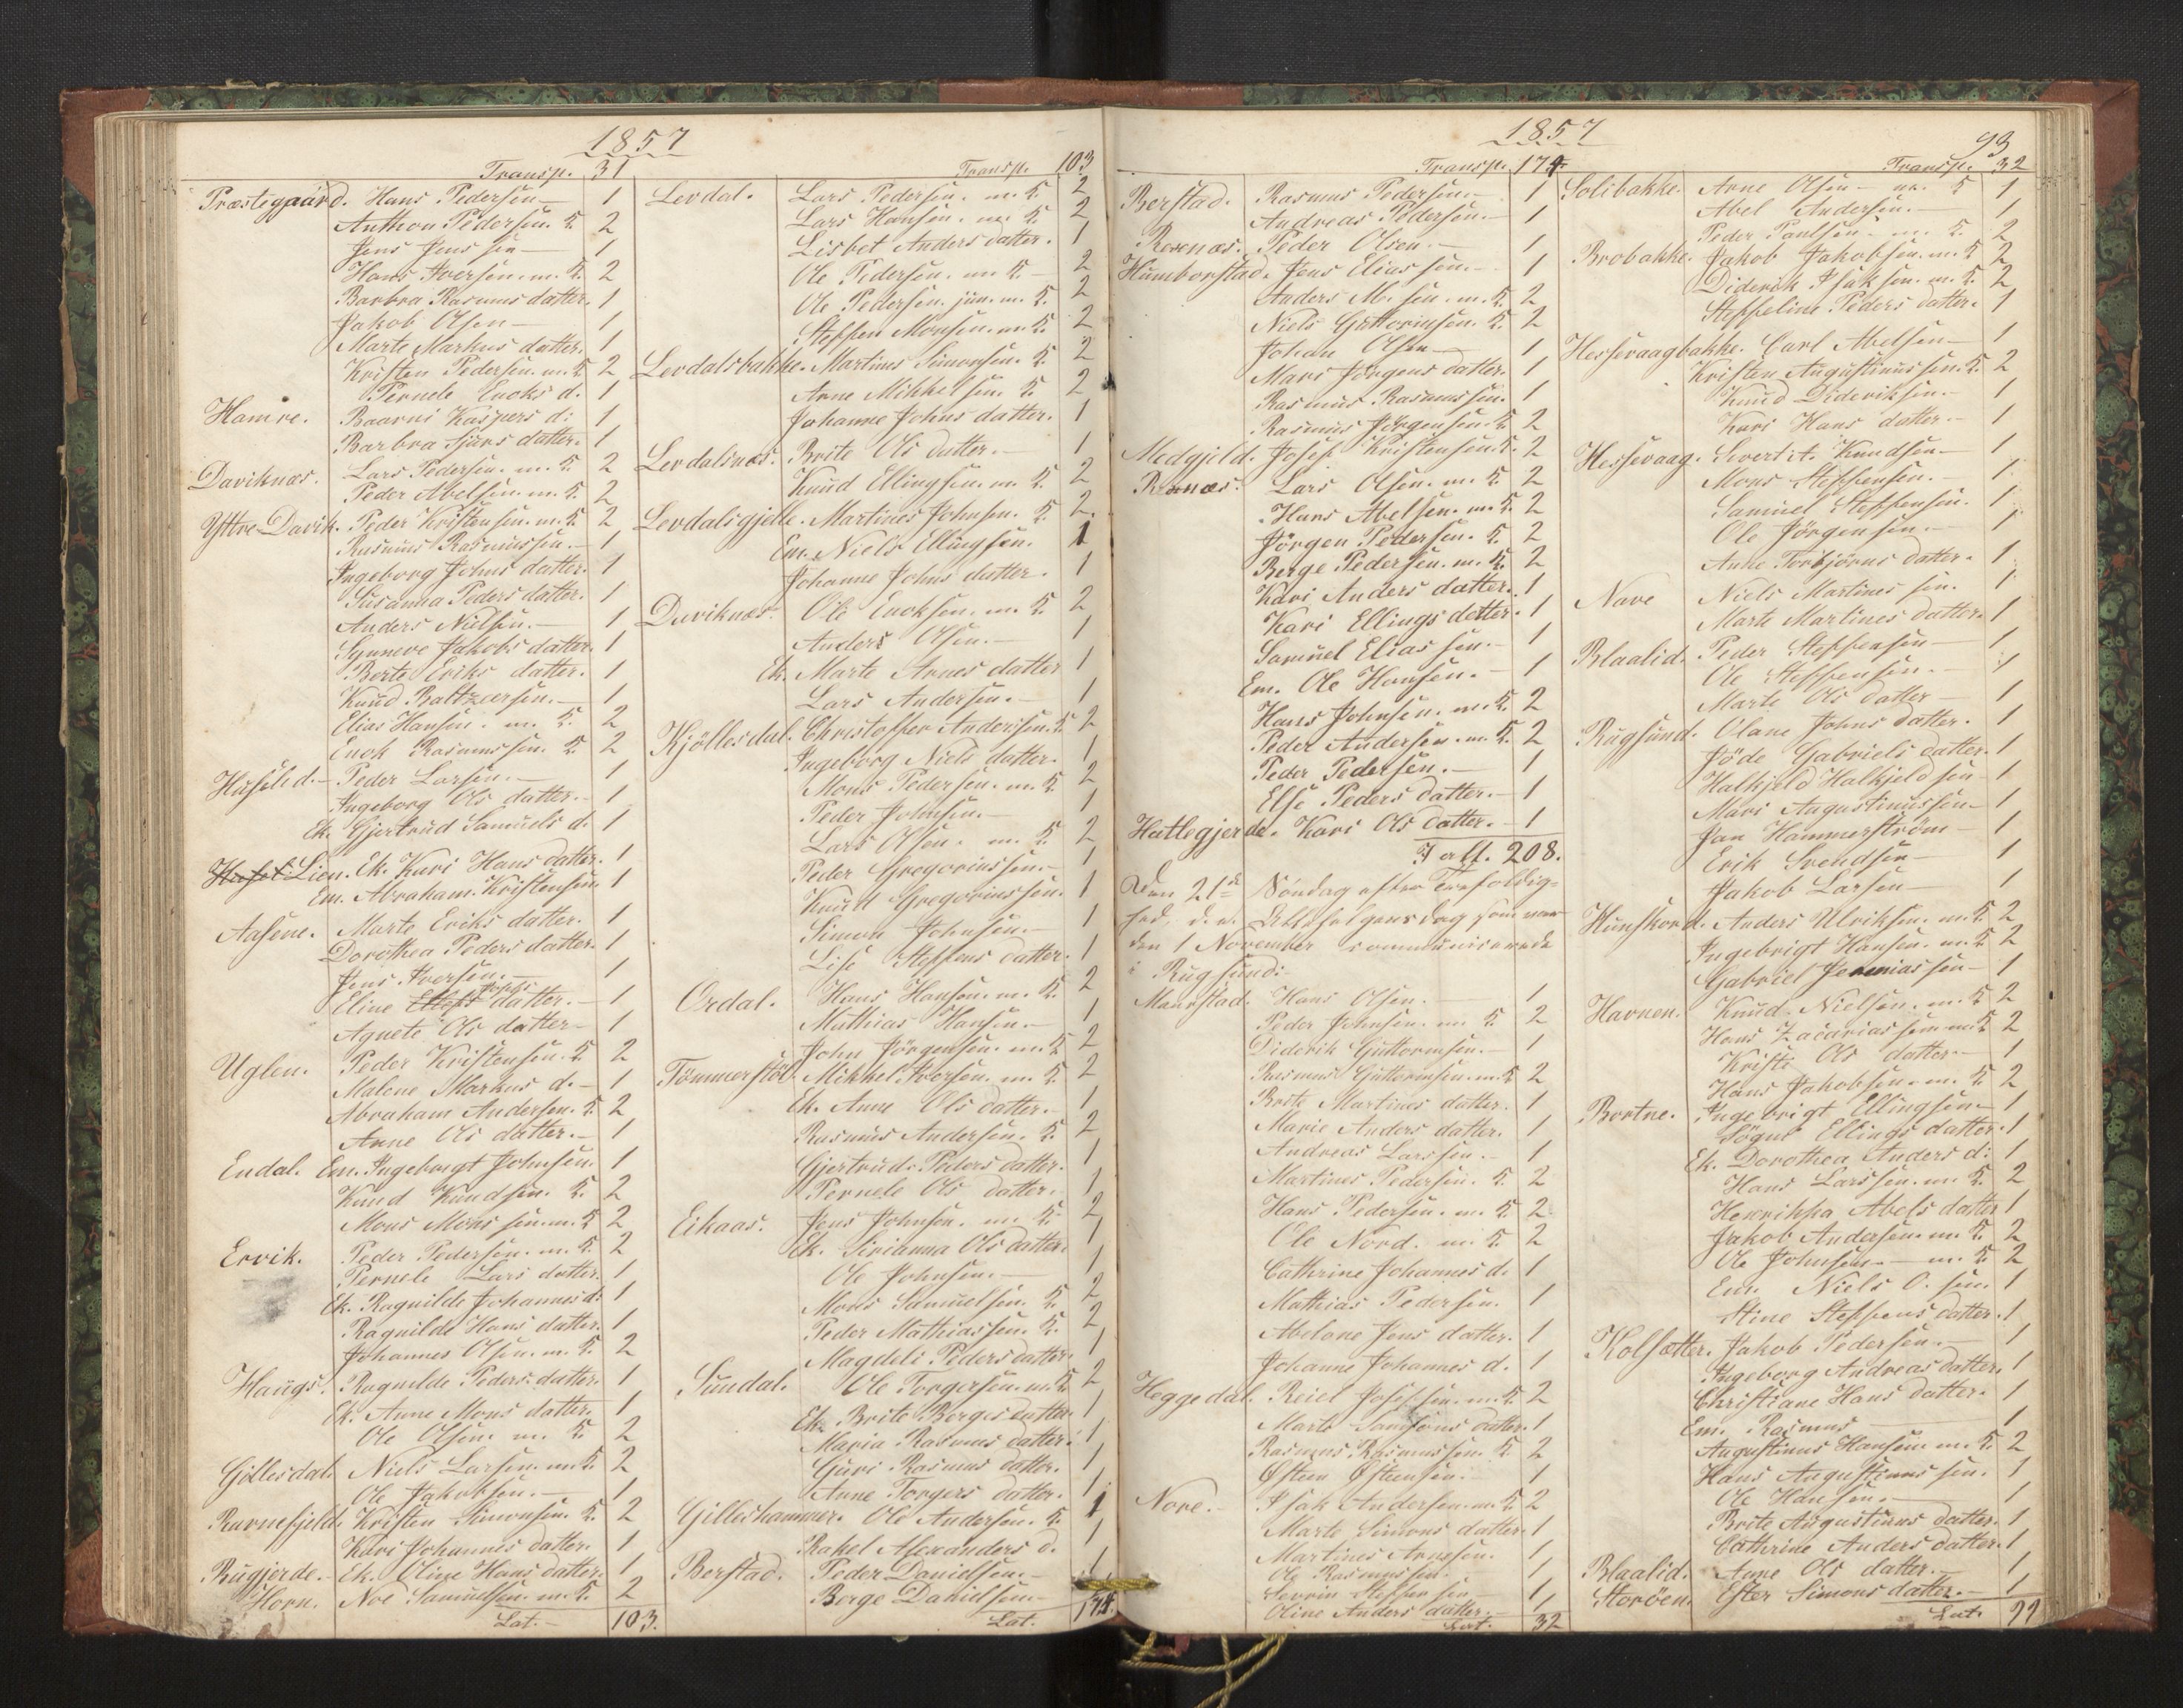 1857
Transp. 31
Præstegaard. Hans Pedersen 1
Anthon Pedersen K. 2
Jens Jens sen 1
Hans Iversen. m. K. 2
Barbra Rasmus datter. 1
Jakob Olsen 1
Marte Markus datter. 1
Kristen Pedersen. m. K. 2
Pernele Enoks d. 1
Hamre. Baarni Kaspers d: 1
Barbra Sjurs datter. 1
Daviknæs. Lars Pedersen. m. K. 2
Peder Abelsen. m. K. 2
Yttre Davik. Peder Kristensen. m. K. 2
Rasmus Rasmussen. 1
Ingeborg Johns datter. 1
Susanna Peders datter. 1
Anders Nielsen. 1
Synneve Jakobs datter. 1
Berte Eriks datter. 1
Knud Baltzersen. 1
Elias Hansen. m. K. 2
Enok Rasmussen. K. 2
Huselid. Peder Larsen. 1
Ingeborg Ols datter. 1
Ek. Gjertrud Samuels d. 1
Lien. Ek. Kari Hans datter. 1
Em. Abraham Kristensen 1
Aasene. Marte Eriks datter. 1
Dorothea Peders datter. 1
Jens Iversen. 1
Eline datter. 1
Agnete Ols datter 1
Uglen. Peder Kristensen. K. 2
Malene Markus d. 1
Abraham Andersen. K. 2
Anne Ols datter. 1
Endal. Em. Ingebrigt Johnsen. 1
Knud Knudsen. K. 2
Mons Mons sen. m. K. 2
Ervik. Peder Pedersen. m. K. 2
Pernele Lars datter. 1
Ek. Ragnilde Johannes d. 1
Ragnilde Hans datter. 1
Johannes Olsen. m. K. 2
Haugs. Ragnilde Peders datter. 1
Ek. Anne Mons datter. 1
Ole Olsen m. K. 2
Gjöllesdal. Niels Larsen. m. K. 2
Ole Jakobsen. 1
Ravnefjeld. Kristen Simonsen. K. 2
Kari Johannes datter. 1
Rugjerde. Ek. Oline Hans datter. 1
Horn. Noe Samuelsen. m. K. 2
Lat. 103.
Transp. 103
Levdal. Lars Pedersen. m. K. 2
Lars Hansen. m. K. 2
Lisbet Anders datter. 1
Ole Pedersen. m. K. 2
Ole Pedersen. jun. m. K. 2
Steffen Monsen. m. K. 2
Levdalsbakke. Martinus Simonsen. K. 2
Arne Mikkelsen. K. 2
Johanne Johns datter. 1
Levdalsnæs. Brite Ols datter. 1
Knud Ellingsen. m. K. 2
Levdalsgjelle. Martines Johnsen. K. 2.
Em. Niels Ellingsen. 1
Johanne Johns datter. 1
Daviknæs. Ole Enoksen. m. K. 2
Anders Olsen. 1
Ek. Marte Arnes datter 1
Lars Andersen. 1
Kjöllesdal. Christoffer Andersen. K. 2
Ingeborg Niels datter. 1
Mons Pedersen. m. K. 2
Peder Johnsen. 1
Lars Olsen. m. K. 2
Peder Gregoriussen. 1
Knud Gregoriussen. 1
Simon Johnsen. 1
Lise Steffens datter. 1
Ordal. Hans Hansen. m. K. 2
Mathias Hansen. 1
John Jörgensen. m. K. 2
Tömmerstöl. Mikkel Iversen. m. K. 2
Ek. Anne Ols datter. 1
Rasmus Andersen. K. 2
Gjertrud Peders datter. 1
Pernele Ols datter. 1
Eikaas. Jens Johnsen. m. K. 2
Ek. Sirianna Ols datter. 1
Ole Johnsen. 1
Mons Samuelsen. K. 2
Peder Mathiassen. K. 2
Magdeli Peders datter. 1
Sundal. Ole Torgersen. m. K. 2
Ek. Brite Berges datter. 1
Maria Rasmus datter. 1
Guri Rasmus datter. 1
Anne Torgers datter. 1
Gilleshammer. Ole Andersen. K. 1
Rakel Alexanders d. 1
Berstad. Peder Danielsen. 1
Berge Danielsen. 1
Lat. 174.
1857
Transp. 174.
Berstad. Rasmus Pedersen. 1
Andreas Pedersen. 1
Resenæs. Peder Olsen. 1
Humborstad. Jens Elias sen. 1
Anders M. sen. m. K. 2
Niels Guttormsen. K. 2
Johan Olsen 1
Mari Jörgens datter. 1
Rasmus Rasmussen. 1
Rasmus Jörgensen. K. 2
Medgjeld. Josef Kristensen. K. 2
Rænæs. Lars Olsen. m. K. 2
Hans Abelsen. m. K. 2
Jörgen Pedersen. K. 2
Berge Pedersen. m. K. 2
Kari Anders datter. 1
Kari Ellings datter. 1
Samuel Elias sen. 1
Em. Ole Hansen. 1
Hans Johnsen. m. K. 2
Peder Andersen. m. K. 2
Peder Pedersen. 1
Else Peders datter. 1
Hatlegjerde. Kari Ols datter. 1
I alt. 208.
Den 21de Söndag efter Trefoldig-
hed, d. e. Allehelgensdag som var
den 1 November communicerede
i Rugsund:
Maurstad. Hans Olsen. 1
Peder Johnsen. m. K. 2
Diderik Guttormsen. 1
Rasmus Guttormsen. m. K. 2
Brite Martines datter. 1
Marie Anders datter. 1
Andreas Larssen. 1
Martines Pedersen. K. 2
Hans Pedersen. m. K. 2
Ole Nord. m. K. 2
Cathrine Johannes d. 1
Mathias Pedersen. 1
Abelone Jens datter. 1
Johanne Johannes d. 1
Heggedal. Reiel Josefsen. m. K. 2
Marte Samsons datter. 1
Rasmus Rasmussen. K. 2
Østen Østensen. 1
Nore. Isak Andersen. m. K. 2
Marte Simons datter. 1
Martines Arnesen. 1
Ole Rasmussen. 1
Severin Steffensen 1
Oline Anders datter. 1
Lat. 32
93
Transp. 32
Solibakke. Arne Olsen m. K 1
Abel Andersen. 1
Peder Paulsen. m. K. 2
Brobakke. Jakob Jakobsen. m. K. 2
Diderik Isaksen. m. K. 2
Steffeline Peders datter. 1
Hessevaagbakke. Carl Abelsen 1
Kristen Augustinussen. K. 2
Knud Dideriksen. 1
Kari Hans datter. 1
Hessevaag. Sivert A. Knudsen 1
Mons Steffensen. 1
Samuel Steffensen. 1
Ole Jörgensen. 1
Anne Torbjörns datter. 1
Nave Niels Martines sen. 1
Marte Martines datter. 1
Blaalid. Peder Steffensen 1
Ole Steffensen. 1
Marte Ols datter 1
Rugsund. Olane Johns datter. 1
Jöde Gabriels datter. 1
Halkjeld Halkjeldsen 1
Mari Augustinussen 1
Jan Hammerström 1
Erik Svendsen 1
Jakob Larsen 1
Hunskord. Anders Ulriksen. m. K. 2
Ingebrigt Hansen. m. K. 2
Gabriel Jeremiassen 1
Havnen. Knud Nielsen. m. K. 2
Hans Zacariassen m. K. 2
Kristi Ols datter. 1
Hans Jakobsen. m. K. 2
Bortne. Ingebrigt Ellingsen 1
Sögni Ellings datter. 1
Ek. Dorothea Anders d: 1
Hans Larssen. m. K. 2
Henrikka Abels datter 1
Jakob Andersen. m. K. 2
Ole Johnsen m. K. 2
Em. Niels O. sen. 1
Stine Steffens datter. 1
Kolsætter. Jakob Pedersen. 1
Ingeborg Andreas datter. 1
Christiane Hans datter. 1
Em. Rasmus 1
Augustinus Hansen. m. K. 2
Hans Augustinussen. 1
Ole Hansen. 1
Brite Augustinus datter. 1
Cathrine Anders datter. 1
Blaalid. Anne Ols datter. 1
Storöen. Ester Simons datter. 1
Lat. 99